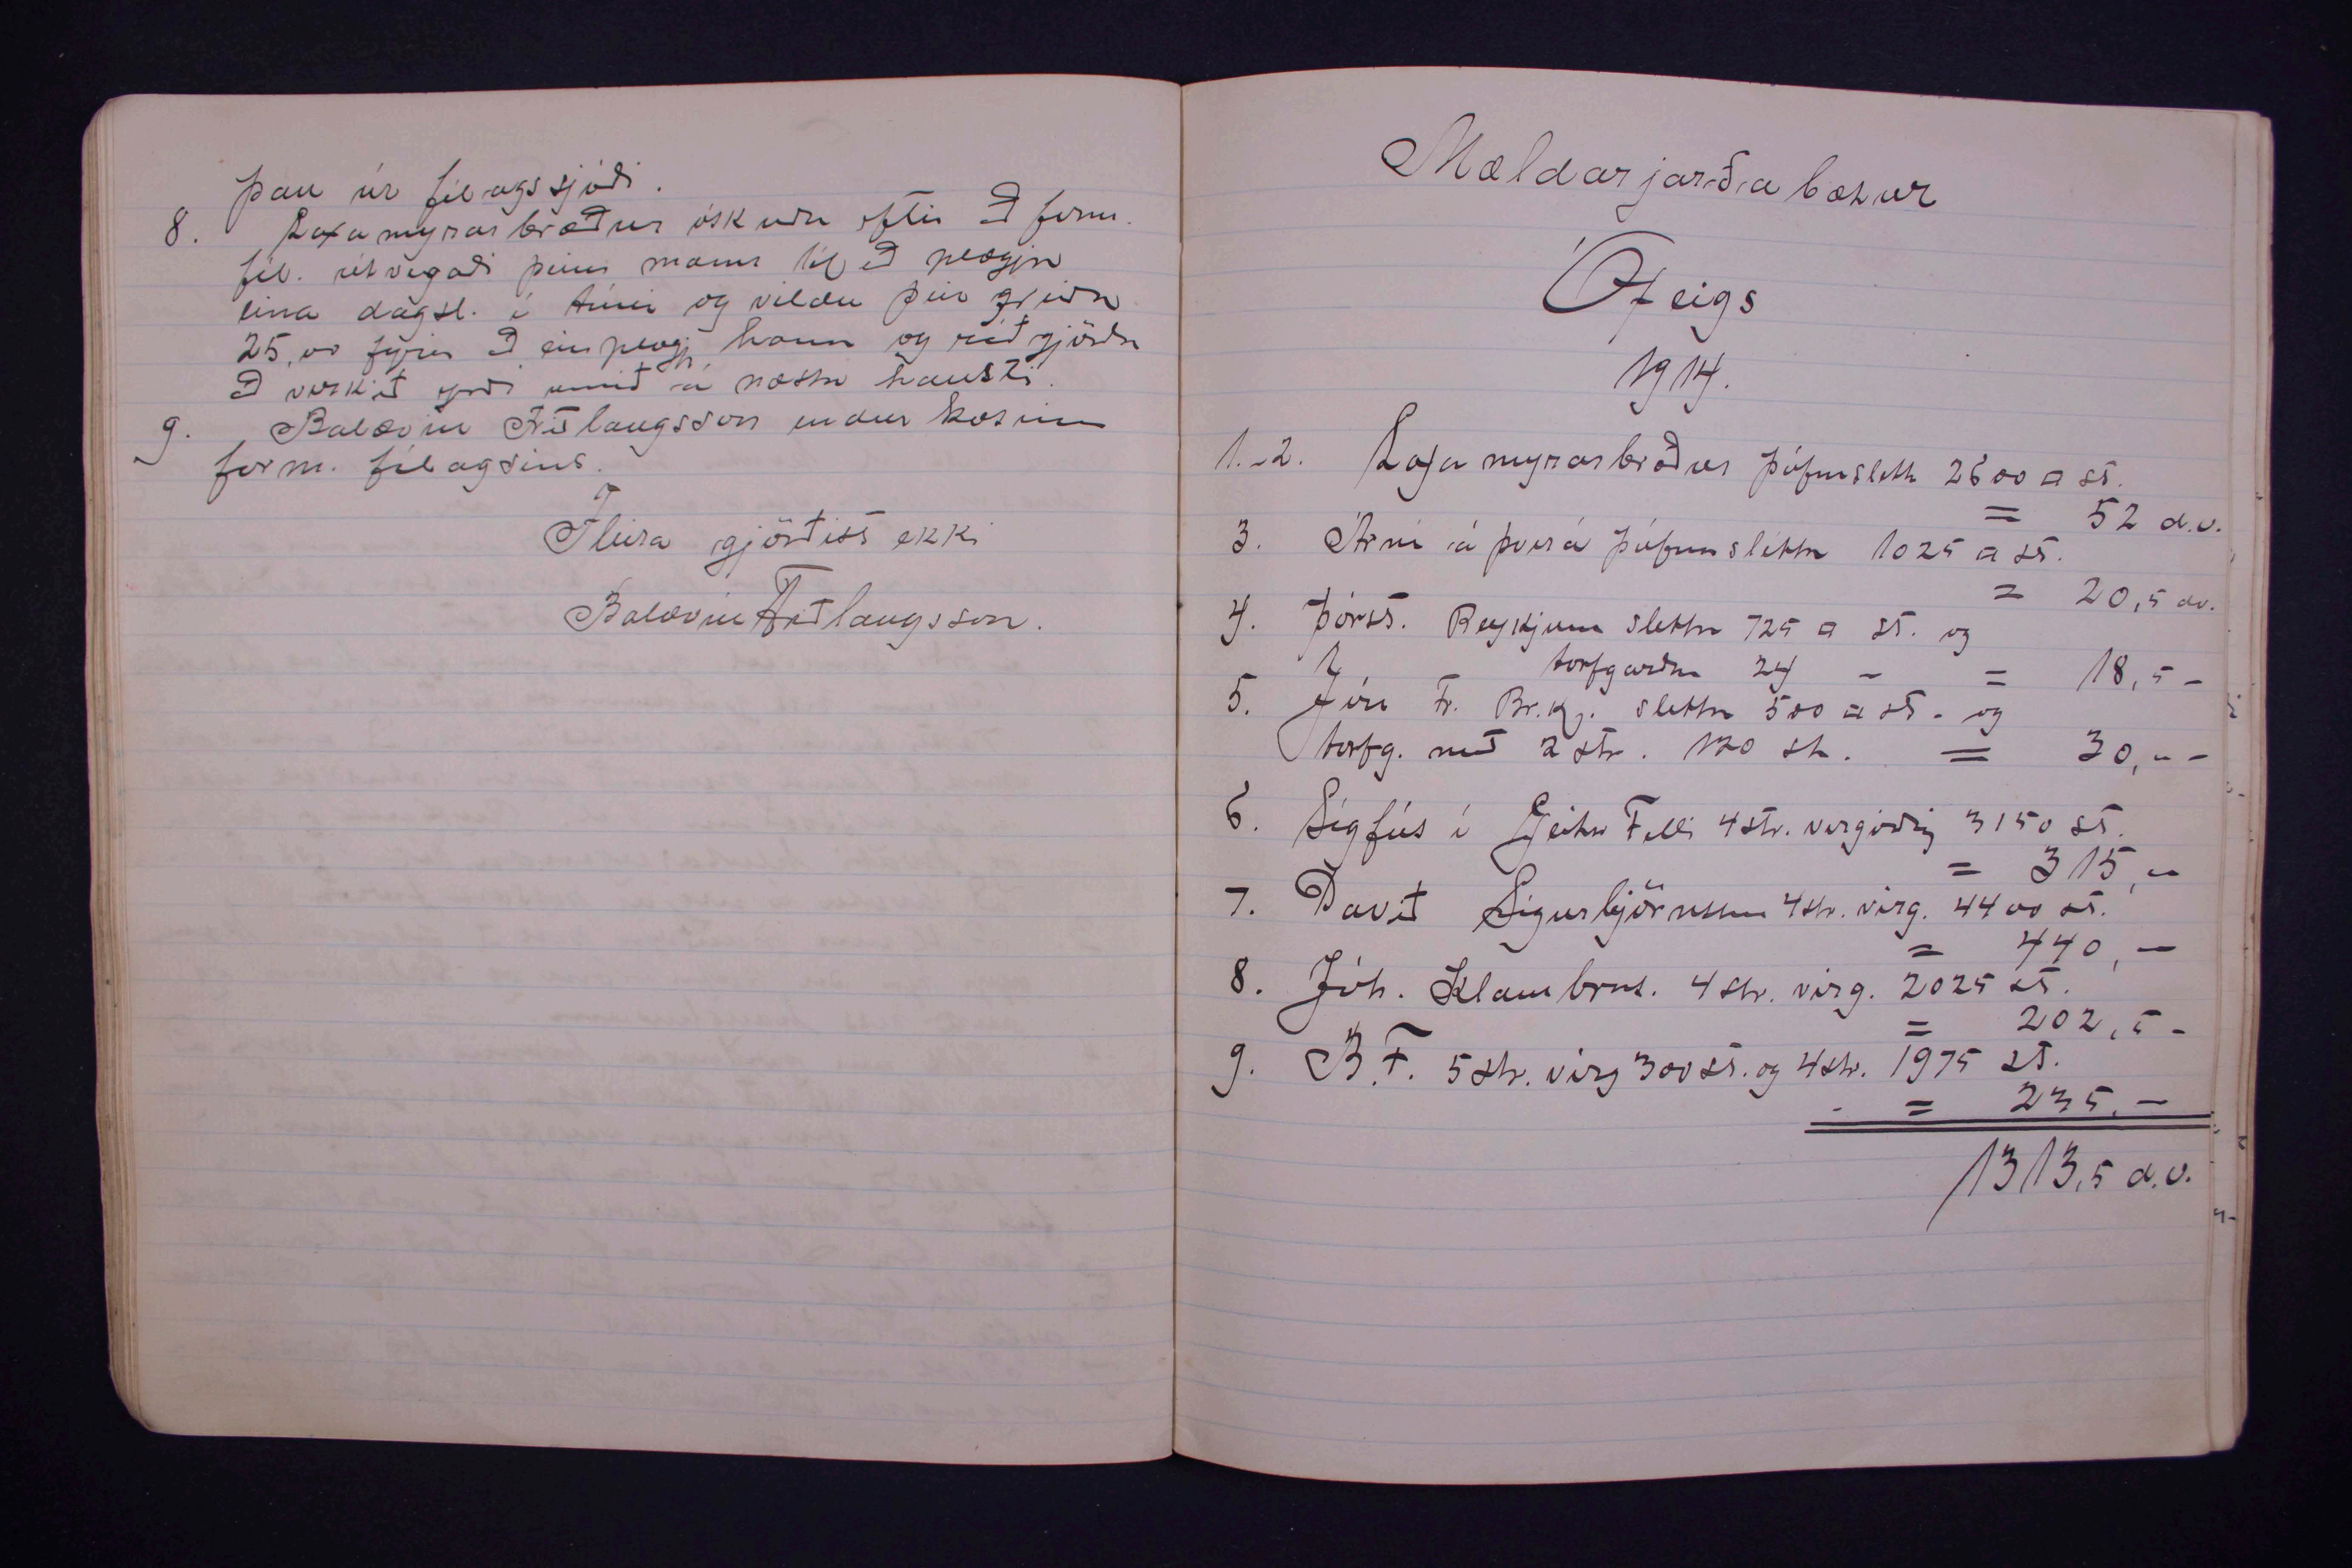 þau úr félagssjóði.
8. Laxamyrarbræður óskuðu eftir að form.
fél. útvegaði þeim mann til að plægja
eina dagsl. í túni og vildu þeir greiða
25,00 fyrir að einplægja hann og ráðgjörðu
að verkið yrði unnið á næsta hausti.
9. Baldvin Friðlaugsson endurkosinn
form. félagsins.
Fleira gjörðist ekki
Baldvin Friðlaugsson.
Mældar jarðabætur
Ófeigs
1914.
1.-2. Laxamyrarbræður þúfnaslétta 2600 □ st.
= 52 d.v.
3. Árni á Þverá þúfnaslétta 1025 □ st.
= 20,5 dv.
4. Þórst. Reykjum slétta 725 □ st. og
torfgarða 24 - = 18,5 -
5. Jón Fr. Br.kj. slétta 500 □ st. og
torfg. með 2 str. 120 st. = 30,- -
6. Sigfús í Geita Felli 4 str. virgirðing 3150 st.
= 315,-
7. Davið Sigurbjörnsson 4 str. virg. 4400 st.
= 440,-
8. Jóh. Klambras. 4 str. virg. 2025 st.
= 202,5 -
9. B.F. 5 str. virg 300 st. og 4 str. 1975 st.
= 235,-
1313,5 d.v.